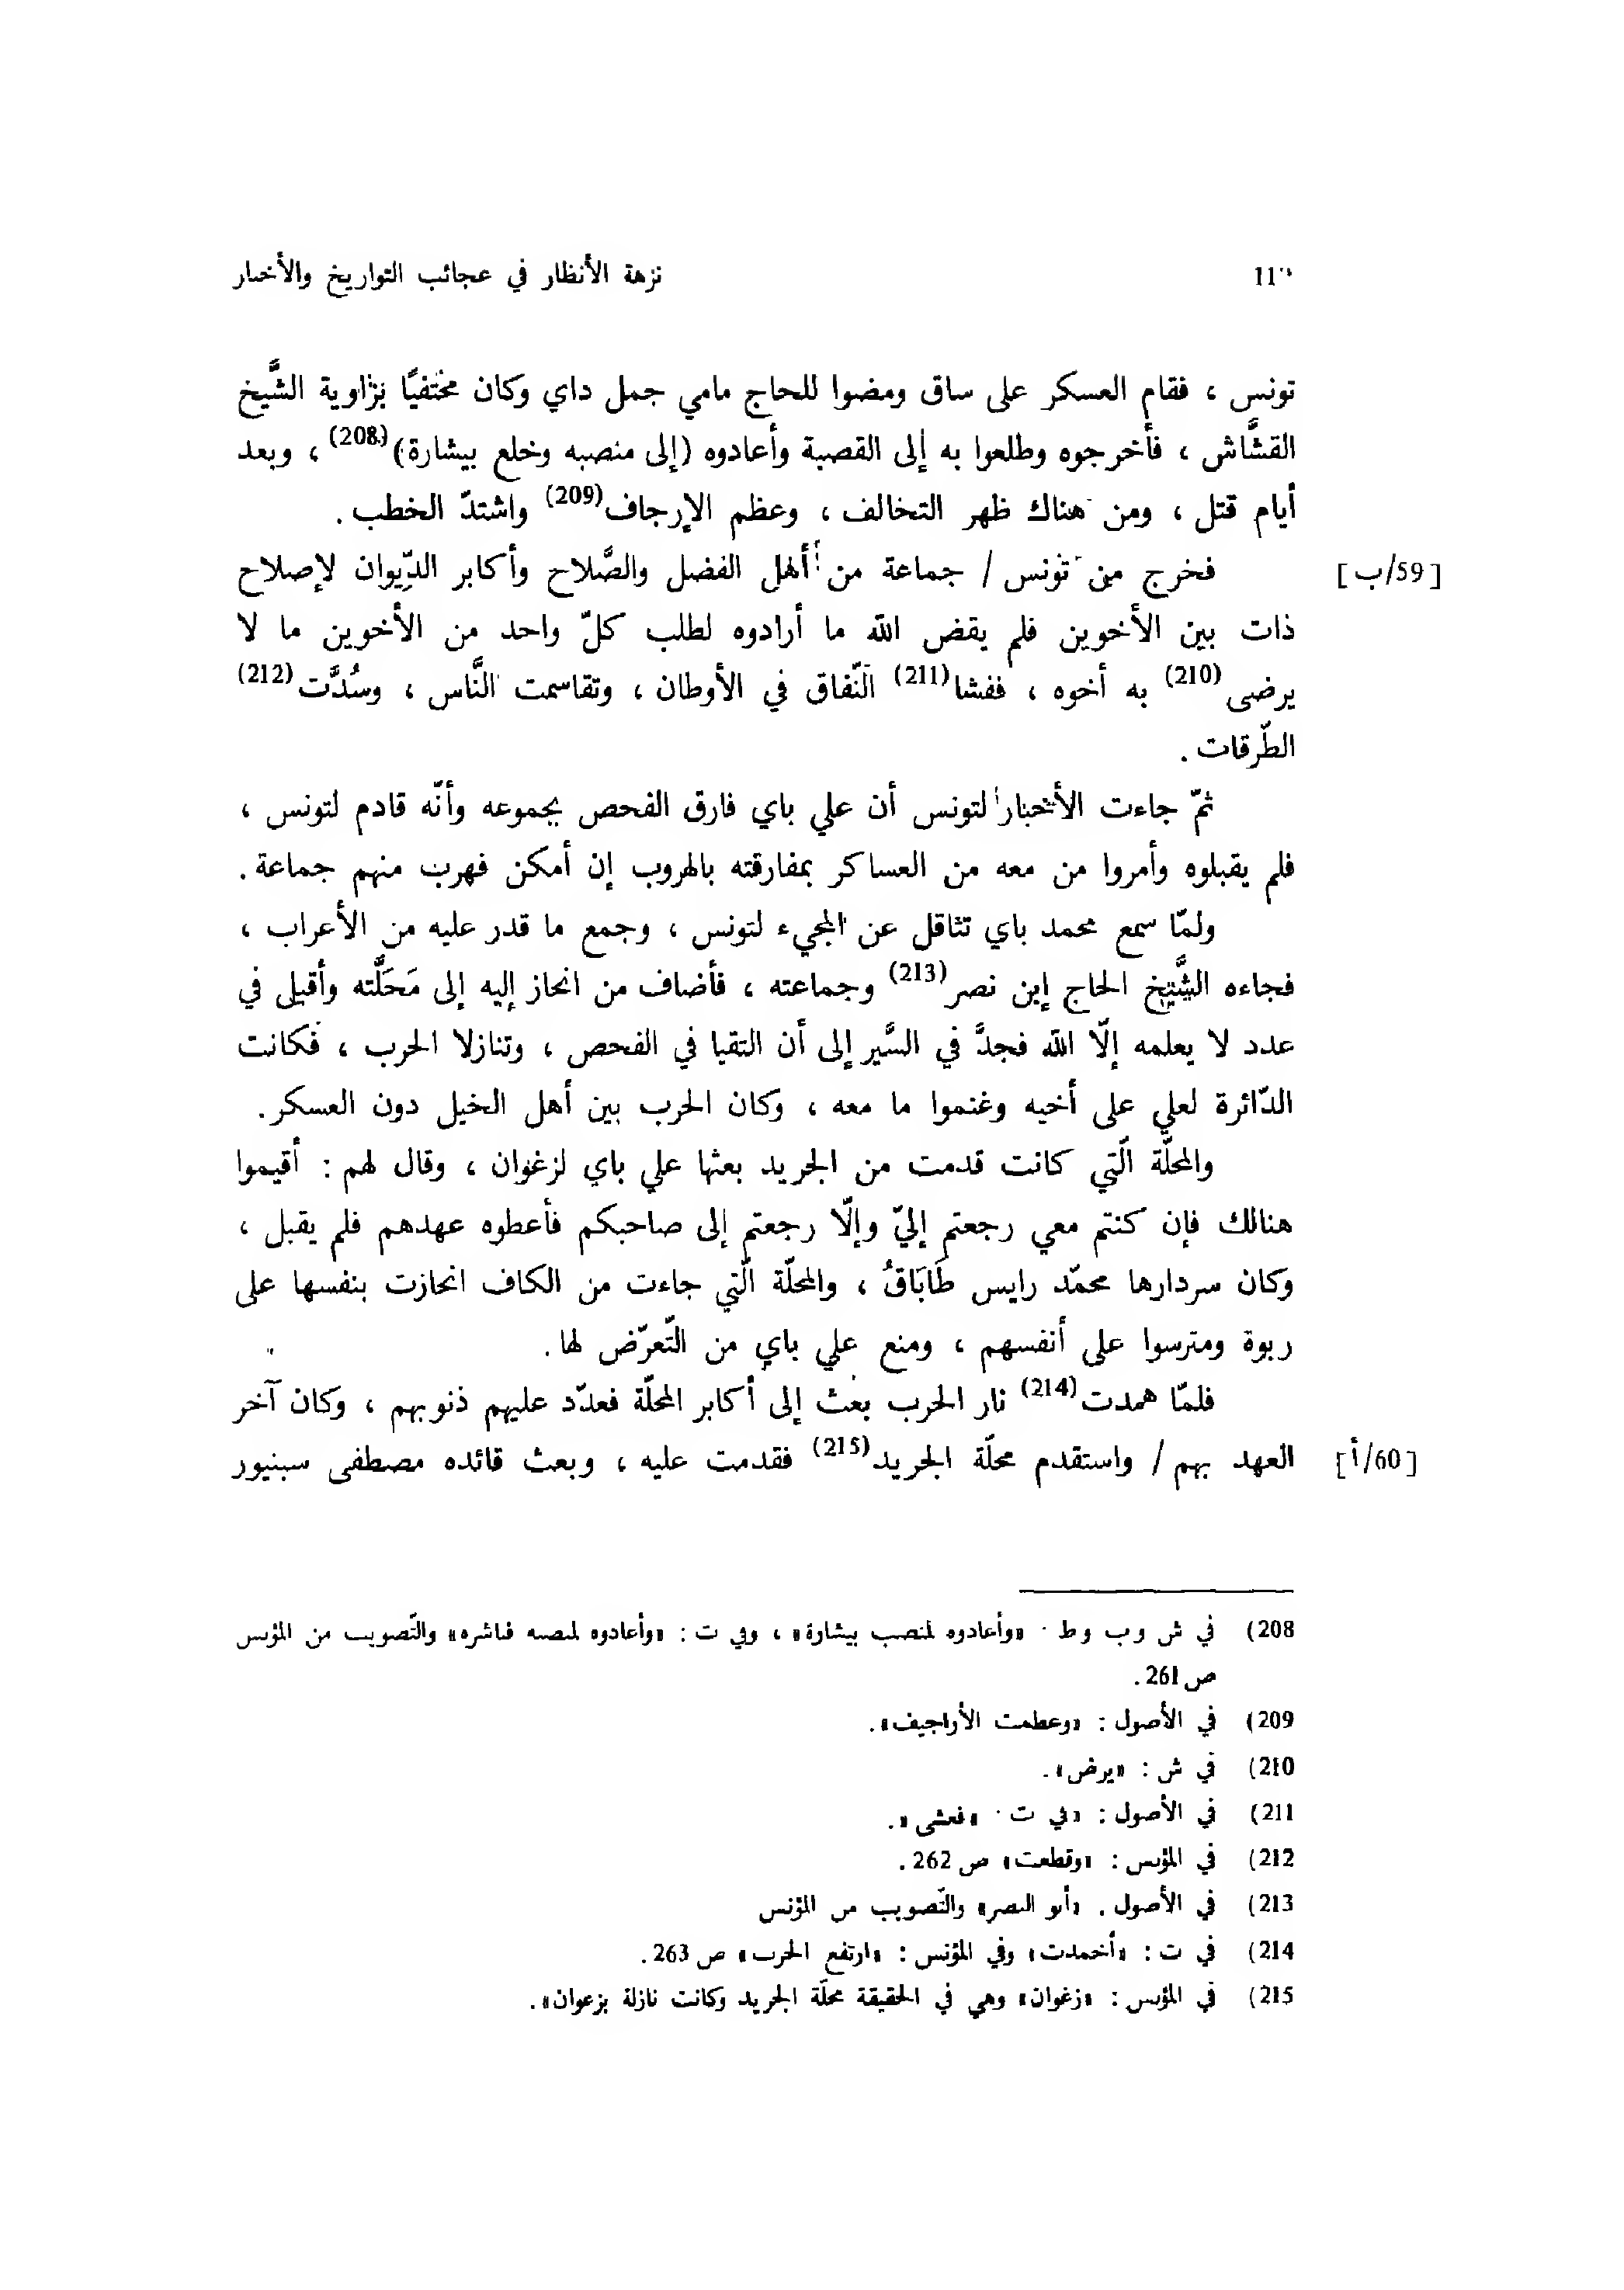 نزهة الأنظار في عجائب التواريخ والأخبار
تونس ، فقام العسكر على ساق ومضوا للحاج مامي جمل داي وكان مختفيًا بزاوية الشَّيخ
القشَّاش ، فأخرجوه وطلعوا به إلى القصبة وأعادوه (إلى منصبه وخلع بيشارة)(208) ، وبعد
أيام قتل ، ومن هناك ظهر التخالف ، وعظم الإرجاف(209) واشتدّ الخطب .
[59/ب] فخرج من تونس / جماعة من أهل الفضل والصَّلاح وأكابر الدِّيوان لإصلاح
ذات بين الأخوين فلم يقض الله ما أرادوه لطلب كلّ واحد من الأخوين ما لا
يرضى(210) به أخوه ، ففشا(211) النّفاق في الأوطان ، وتقاسمت النَّاس ، وسُدَّت(212)
الطّرقات .
ثمّ جاءت الأخبار لتونس أن علي باي فارق الفحص بجموعه وأنّه قادم لتونس ،
فلم يقبلوه وأمروا من معه من العساكر بمفارقته بالهروب إن أمكن فهرب منهم جماعة .
ولمّا سمع محمد باي تثاقل عن المجيء لتونس ، وجمع ما قدر عليه من الأعراب ،
فجاءه الشَّيخ الحاج إبن نصر(213) وجماعته ، فأضاف من انحاز إليه إلى مَحَلَّته وأقبل في
عدد لا يعلمه إلّا الله فجدَّ في السَّير إلى أن التقيا في الفحص ، وتنازلا الحرب ، فكانت
الدّائرة لعلي على أخيه وغنموا ما معه ، وكان الحرب بين أهل الخيل دون العسكر .
والمحلّة الّتي كانت قدمت من الجريد بعثها علي باي لزغوان ، وقال لهم : أقيموا
هنالك فإن كنتم معي رجعتم إليّ وإلّا رجعتم إلى صاحبكم فأعطوه عهدهم فلم يقبل ،
وكان سردارها محمّد رايس طَابَاقُ ، والمحلّة الّتي جاءت من الكاف انحازت بنفسها على
ربوة ومترسوا على أنفسهم ، ومنع علي باي من التّعرّض لها .
فلمّا همدت(214) نار الحرب بعث إلى أكابر المحلّة فعدّد عليهم ذنوبهم ، وكان آخر
[60/أ] العهد بهم / واستقدم محلّة الجريد(215) فقدمت عليه ، وبعث قائده مصطفى سبنيور
208) في ش وب وط «وأعادوه لمنصب بيشارة» ، وفي ت : «وأعادوه لمنصبه فباشره» والتّصويب من المؤنس
ص 261 .
209) في الأصول : «وعظمت الأراجيف» .
210) في ش : «يرض» .
211) في الأصول : «في ت «فعشى» .
212) في المؤنس : «وقطعت» ص 262 .
213) في الأصول . «أبو النصر» والتّصويب من المؤنس
214) في ت : «أخمدت» وفي المؤنس : «ارتفع الحرب» ص 263 .
215) في المؤنس : «زغوان» وهي في الحقيقة محلّة الجريد وكانت نازلة بزغوان» .